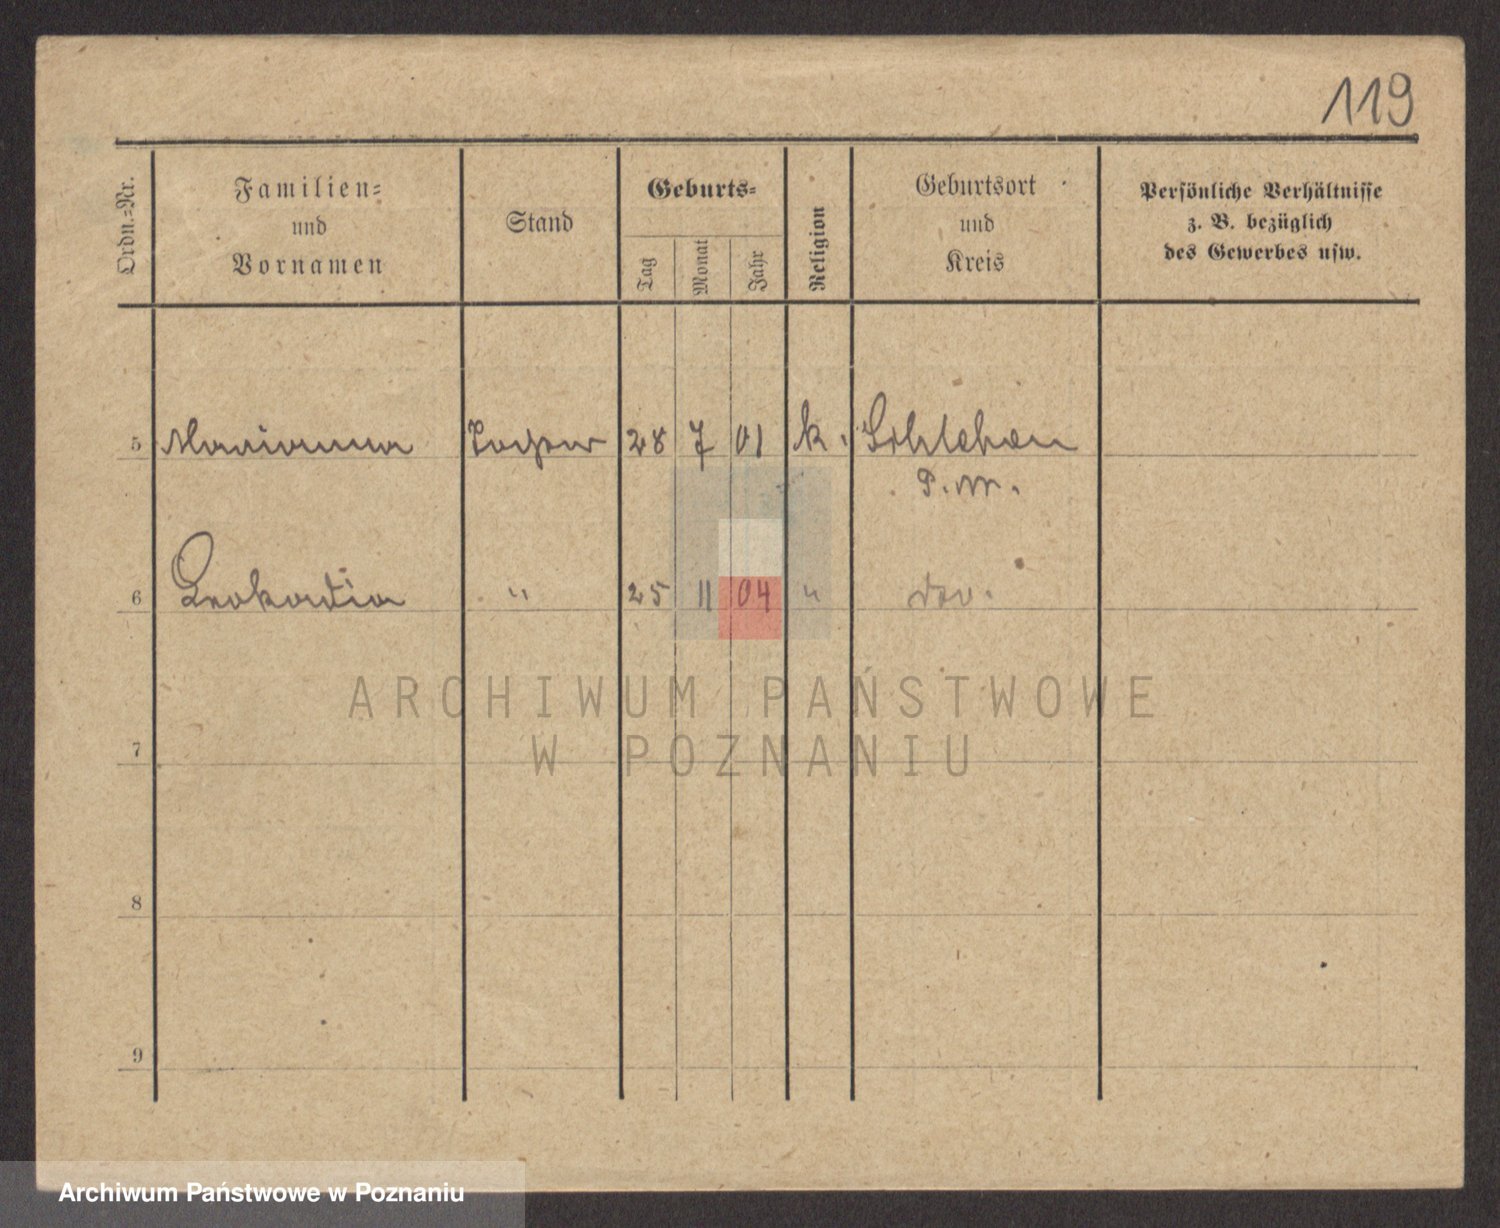 119
Ordn.=Nr.
Familien=
und
Vornamen
Stand
Geburts=
Tag
Monat
Jahr
Religion
Geburtsort
und
Kreis
Persönliche Verhältnisse
z. B. bezüglich
des Gewerbes usw.
5 Marianna Tochter 28 7 01 k. Schlehen
P. W.
6 Leokadia " 25 11 04 " do.
7
8
9
ARCHIWUM PAŃSTWOWE
W POZNANIU
Archiwum Państwowe w Poznaniu